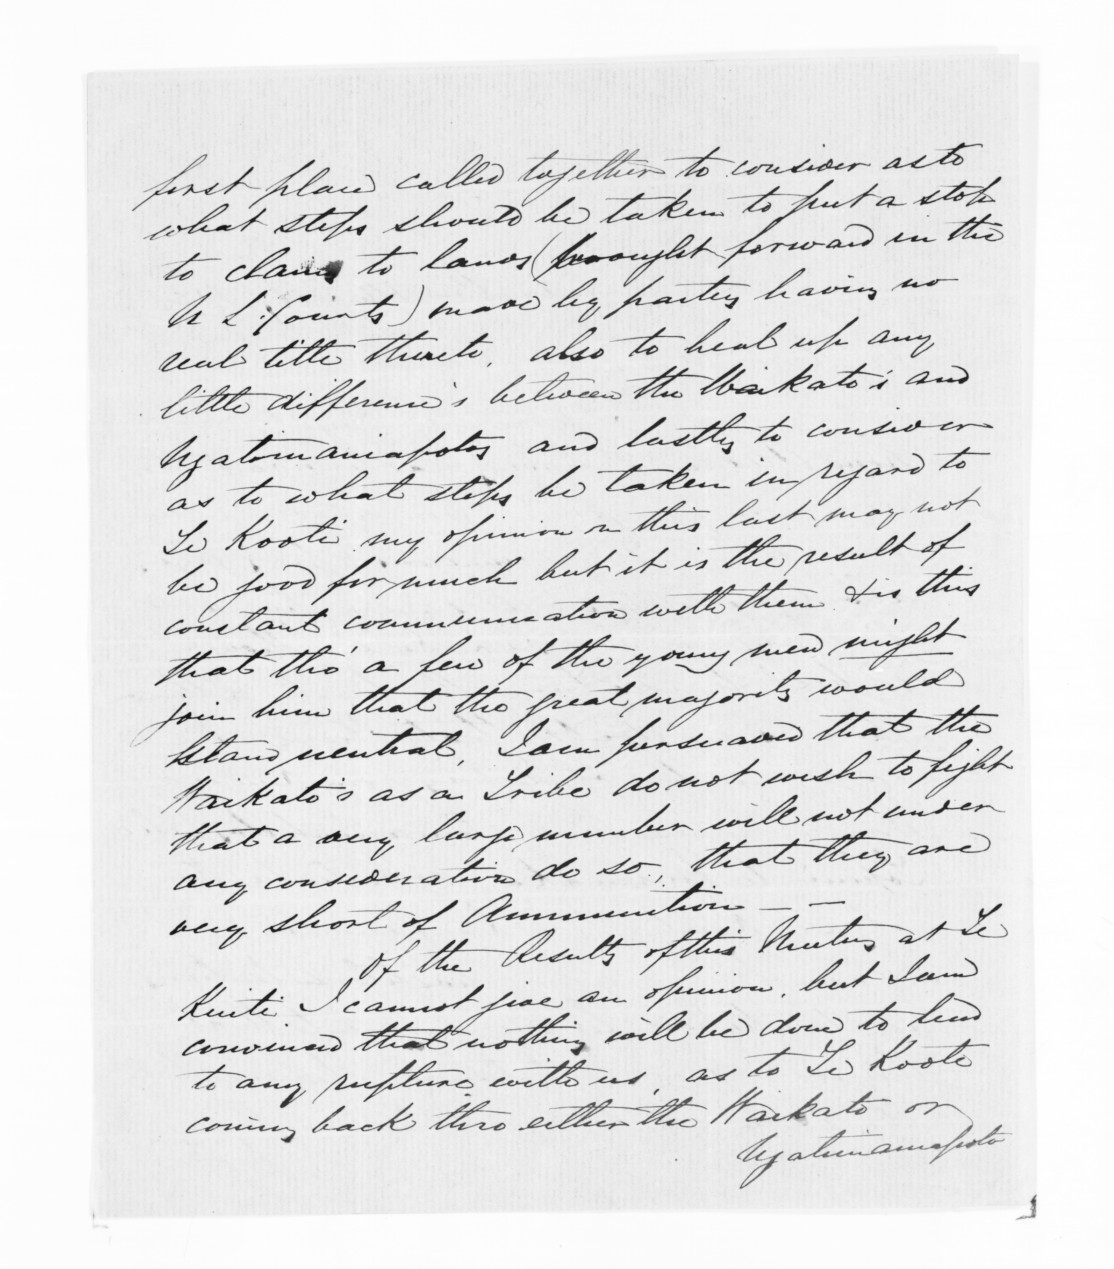 first place called together to consider as to
what steps should be taken to put a stop
to claims to lands (brought forward in the
N L. Courts) made by parties having no
real title thereto, also to heal up any
little difference's between the Waikato's and
Ngatimaniapotos and lastly to consider
as to what steps be taken in regard to
Te Kooti my opinion on this last may not
be good for much but it is the result of
constant communication with them & is this
that tho' a few of the young men might
join him that the great majority would
stand neutral, I am persuaded that the
Waikato's as a Tribe do not wish to fight
that a very large number will not under
any consideration do so, that they are
very short of Ammunition — —
Of the Results of this Meeting at Te
Kuiti I cannot give an opinion, but I am
convinced that nothing will be done to lead
to any rupture with us, as to Te Kooti
coming back thro either the Waikato or
Ngatimaniapoto